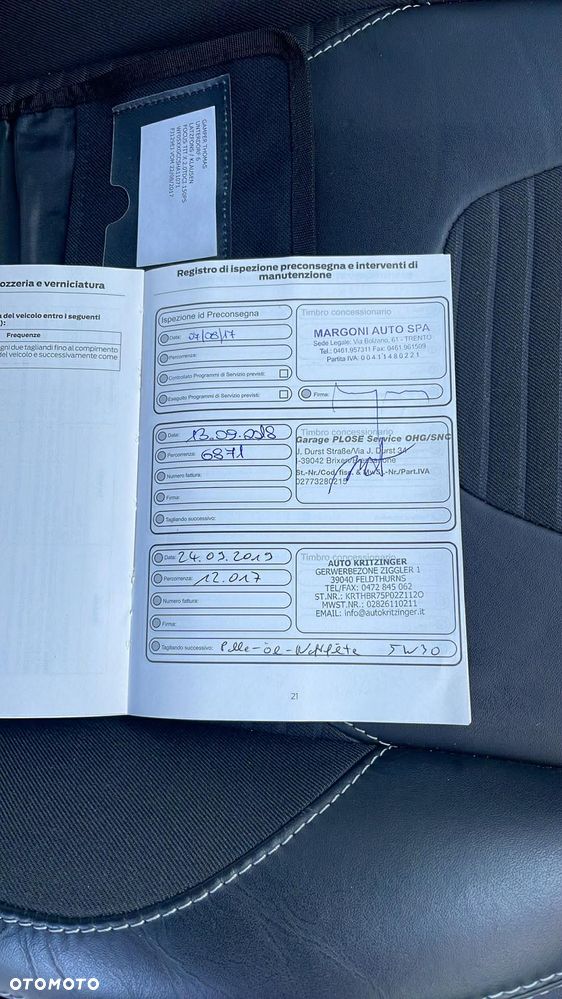 GAMPER THOMAS
UNTERDORF 6
LATZFONS / KLAUSEN
FOCUS TIT X 2.0TDCI 150PS
ozzeria e verniciatura
a del veicolo entro i seguenti
):
Frequenze
gni due tagliandi fino al compimento
del veicolo e successivamente come
Registro di ispezione preconsegna e interventi di
manutenzione
Ispezione id Preconsegna
Data: 07/08/17
Percorrenza:
Controllato Programmi di Servizio previsti:
Eseguito Programmi di Servizio previsti:
Timbro concessionario
MARGONI AUTO SPA
Sede Legale: Via Bolzano, 61 - TRENTO
Tel.: 0461.957311 Fax: 0461.961509
Partita IVA: 00411480221
Firma:
Data: 13.09.2018
Percorrenza: 6871
Numero fattura:
Firma:
Tagliando successivo:
Timbro concessionario
Garage PLOSE Service OHG/SNC
J. Durst Straße/Via J. Durst 34
I-39042 Brixen/Bressanone
St.-Nr./Cod. fisc. & MwSt.-Nr./Part.IVA
02773280215
Data: 24.09.2019
Percorrenza: 12.017
Numero fattura:
Firma:
Timbro concessionario
AUTO KRITZINGER
GERWERBEZONE ZIGGLER 1
39040 FELDTHURNS
TEL/FAX: 0472 845 062
ST.NR.: KRTHBR75P02Z112O
MWST.NR.: 02826110211
EMAIL: info@autokritzinger.it
Tagliando successivo: 5W30
21
OTOMOTO